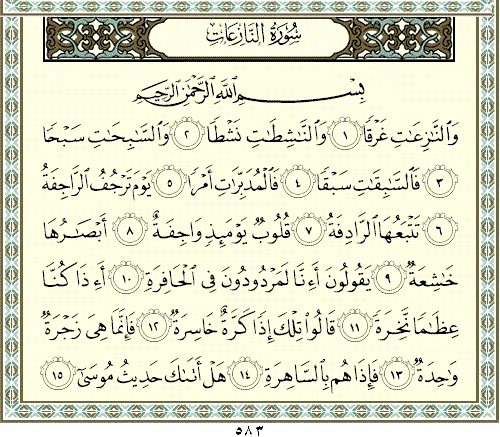 سُورَةُ النَّازِعَاتِ
بِسْمِ اللَّهِ الرَّحْمَٰنِ الرَّحِيمِ
وَالنَّازِعَاتِ غَرْقًا ١ وَالنَّاشِطَاتِ نَشْطًا ٢ وَالسَّابِحَاتِ سَبْحًا
٣ فَالسَّابِقَاتِ سَبْقًا ٤ فَالْمُدَبِّرَاتِ أَمْرًا ٥ يَوْمَ تَرْجُفُ الرَّاجِفَةُ
٦ تَتْبَعُهَا الرَّادِفَةُ ٧ قُلُوبٌ يَوْمَئِذٍ وَاجِفَةٌ ٨ أَبْصَارُهَا
خَاشِعَةٌ ٩ يَقُولُونَ أَءِنَّا لَمَرْدُودُونَ فِي الْحَافِرَةِ ١٠ أَءِذَا كُنَّا
عِظَامًا نَّخِرَةً ١١ قَالُوا تِلْكَ إِذًا كَرَّةٌ خَاسِرَةٌ ١٢ فَإِنَّمَا هِيَ زَجْرَةٌ
وَاحِدَةٌ ١٣ فَإِذَا هُم بِالسَّاهِرَةِ ١٤ هَلْ أَتَىٰكَ حَدِيثُ مُوسَىٰ ١٥
٥٨٣